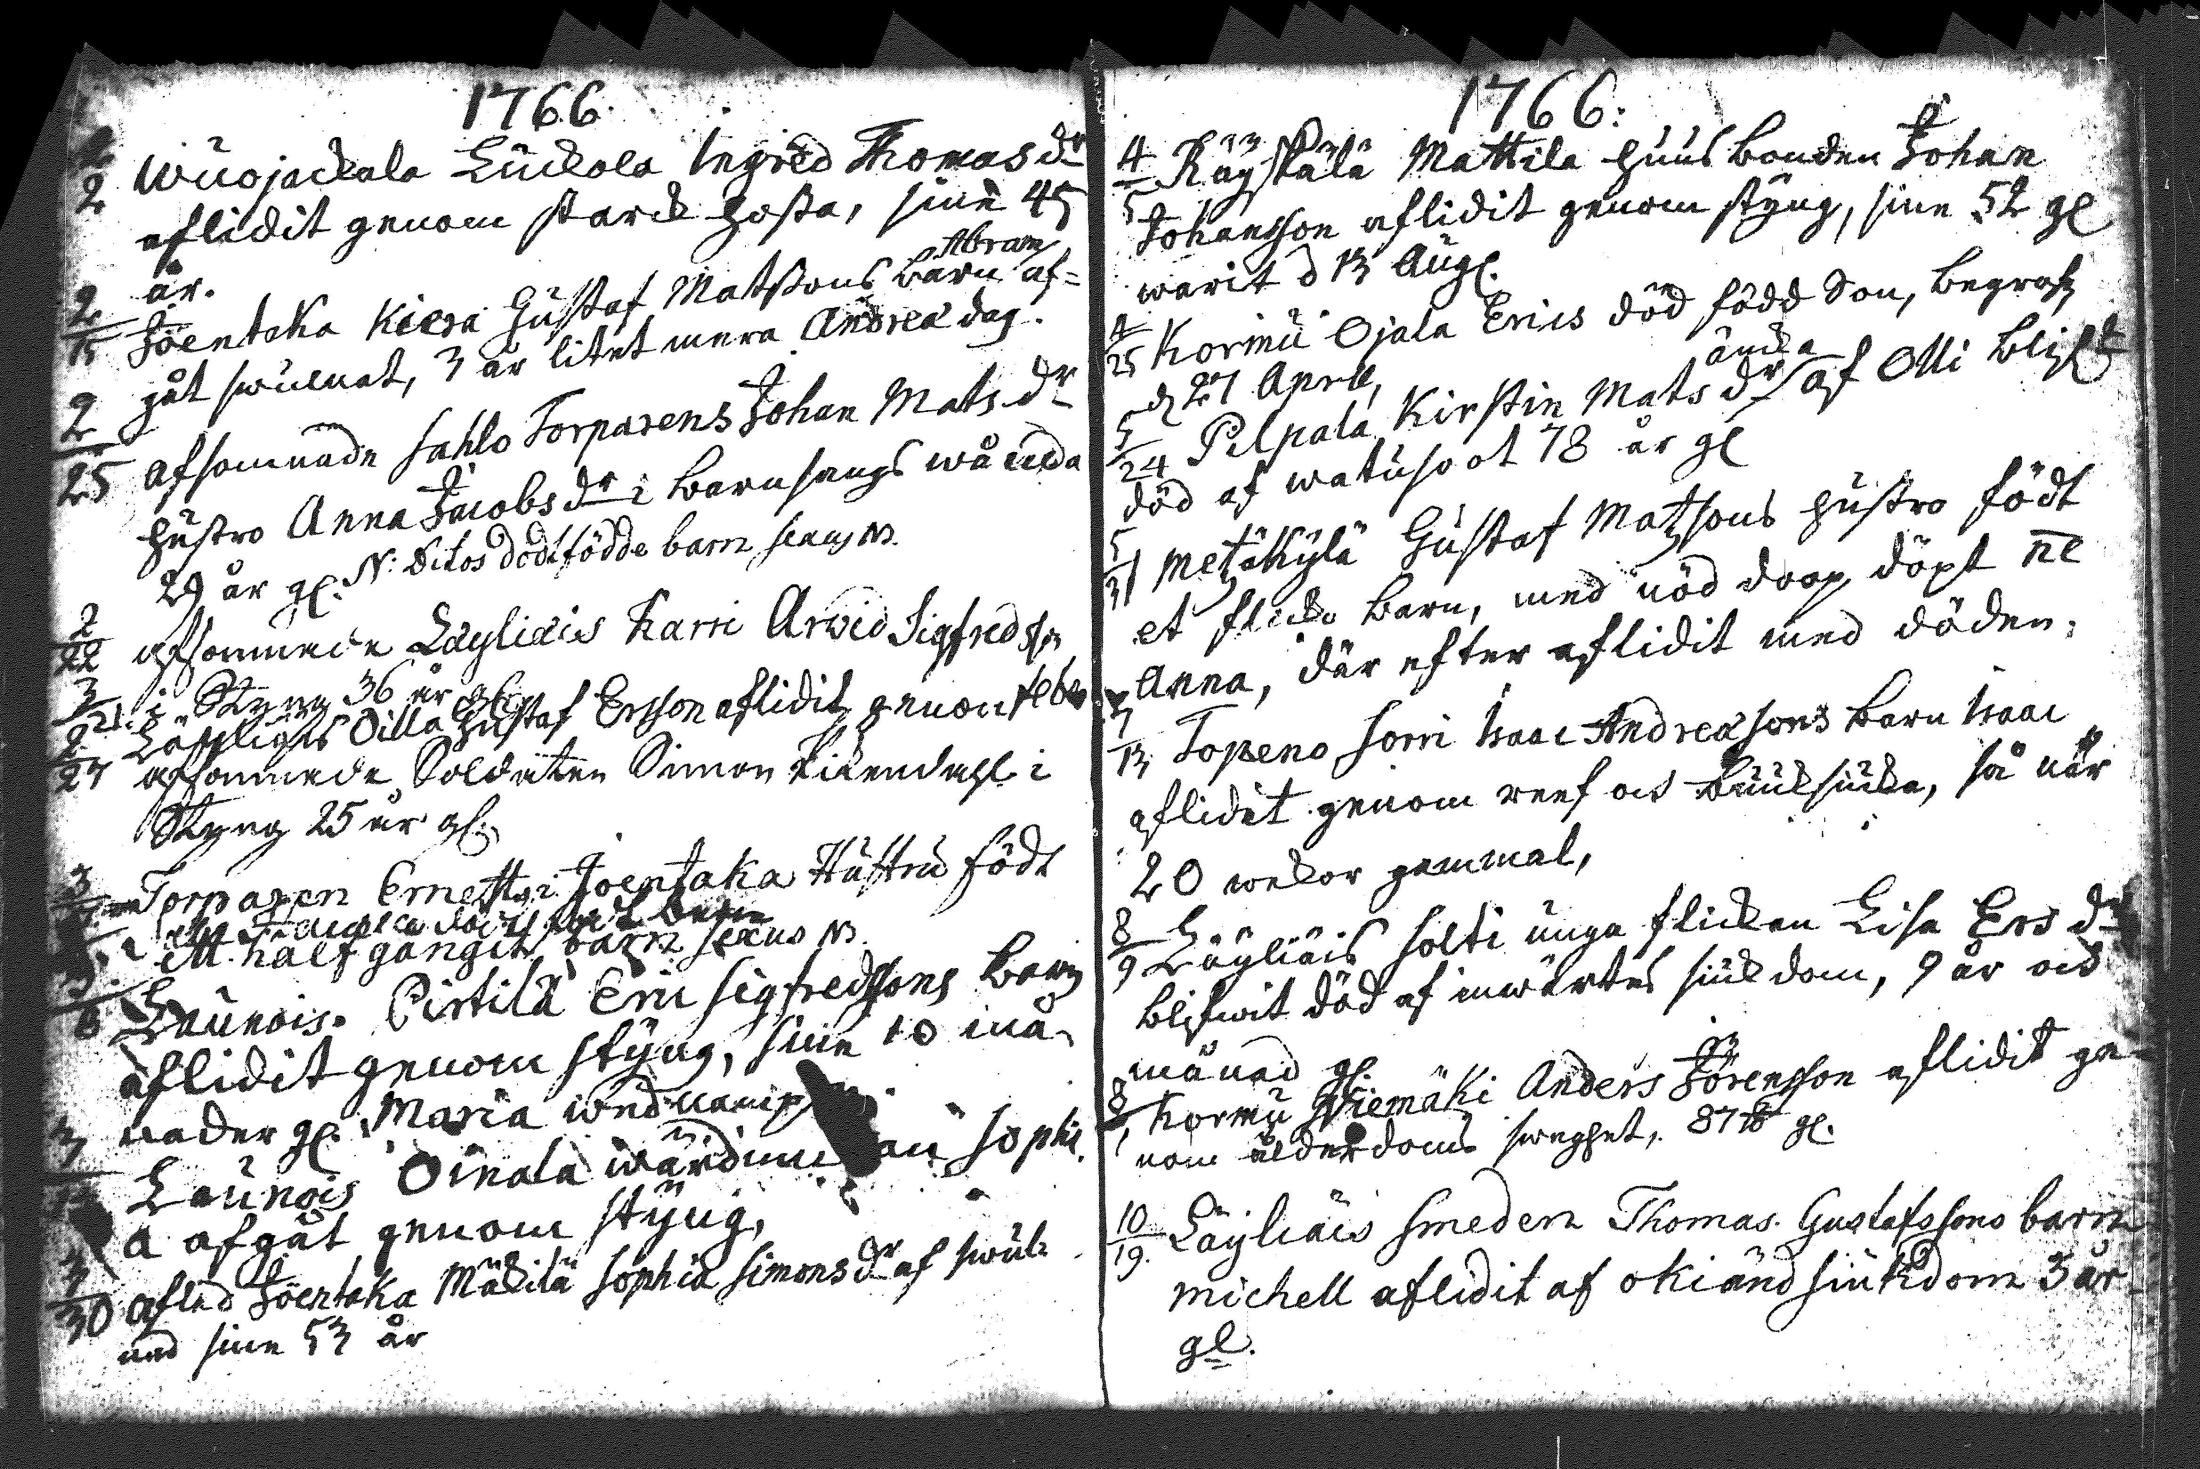 1766.
2 Wuojackala Luckola Ingred Thomas dr
aflidit genom starck hosta, sine 45
år.
2/15 Joentaka Kiera Gustaf Matssons barn Abram af=
gåt swulnat, 3 år litet mera Andrea dag.
2/25 afsomnade sahlo Torparens Johan Mats dr
hustro Anna Jacobs dr i barnsengs wånda
29 år gl. N: Ditos dödfödde barn
2/22 afsomnade Läyliäis Karri Arwid Sigfredss.
3/21. i Styng 36 år gl.
Läyliäis Oilla Gustaf Ersson aflidit genom feber
2/27 afsomnade Soldaten Simon i
Styng 25 år gl.
3 Torparen i Joentaka Hustru födt
ett halfgångit barn sexus
3/8 Launois. Pirtilä Eric Sigfredssons barn
aflidit genom styng, sine 10 må-
nader gl. Maria wid namn
3 Launois Oinala wärdinnan Sophi
a afgåt genom styng,
3/30 afled Joentaka Mäkilä Sophia Simons dr af swul=
nad sine 53 år
1766:
4/5 Räyskälä Mattila husbonden Johan
Johansson aflidit genom styng, sine 52 gl
warit d 13 Aug.
4/25 Kormu Ojala Erics död född son, begrafz
d 27 April,
5/24 Pilpala Kirstin Mats dr änka af Olli blef
död af watusoot 78 år gl
5/31 Metzäkylä Gustaf Matzsons hustro födt
et flicke barn, med nöd doop döpt nl
Anna, där efter aflidit med döden.
7/13 Topeno Sorri Isaac Andreasons barn Isaac
aflidit genom reef och buuksiuka, så när
20 wekor gammal,
8/9 Läyliäis Solti unga flickan Lisa Ers dr
blefwit död af inwärtes siukdom, 9 år och
månad gl.
8/1 Kormu Niemäki Anders Jörensson aflidit ge-
nom ålderdoms swaghet, 87 gl.
10/19. Läyliäis Smeden Thomas Gustafssons barn
Michell aflidit af okiänd siukdom 3 år
gl.